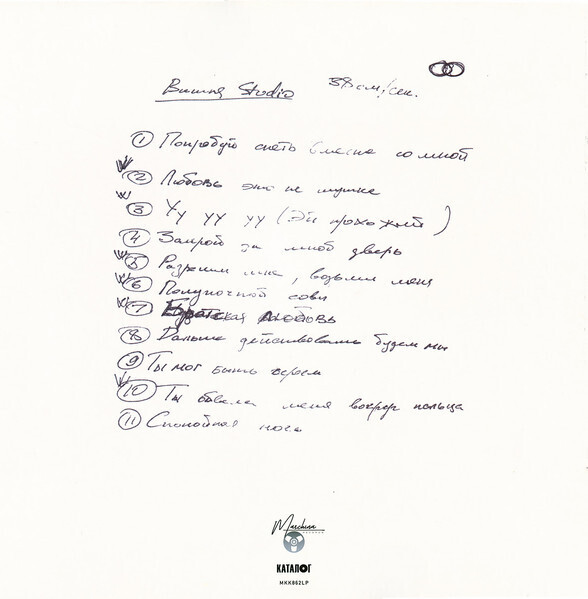 Вишня Studio 38 см/сек.
① Попробуй спеть вместе со мной
② Любовь это не шутка
③ Уу уу уу (Эй прохожий)
④ Закрой за мной дверь
⑤ Разреши мне, возьми меня
⑥ Полуночной совы
⑦ Братская любовь
⑧ Дальше действовать будем мы
⑨ Ты мог быть героем
⑩ Ты меня вокруг пальца
⑪ Спокойная ночь
Maschina
RECORDS
КАТАЛОГ
MKK862LP